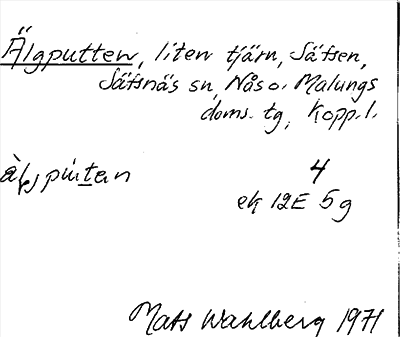 Älgputten, liten tjärn, Säfsen,
Säfsnäs sn, Nås o. Malungs
doms. tg, Kopp. l.
4
ek 12E 5g
Mats Wahlberg 1971